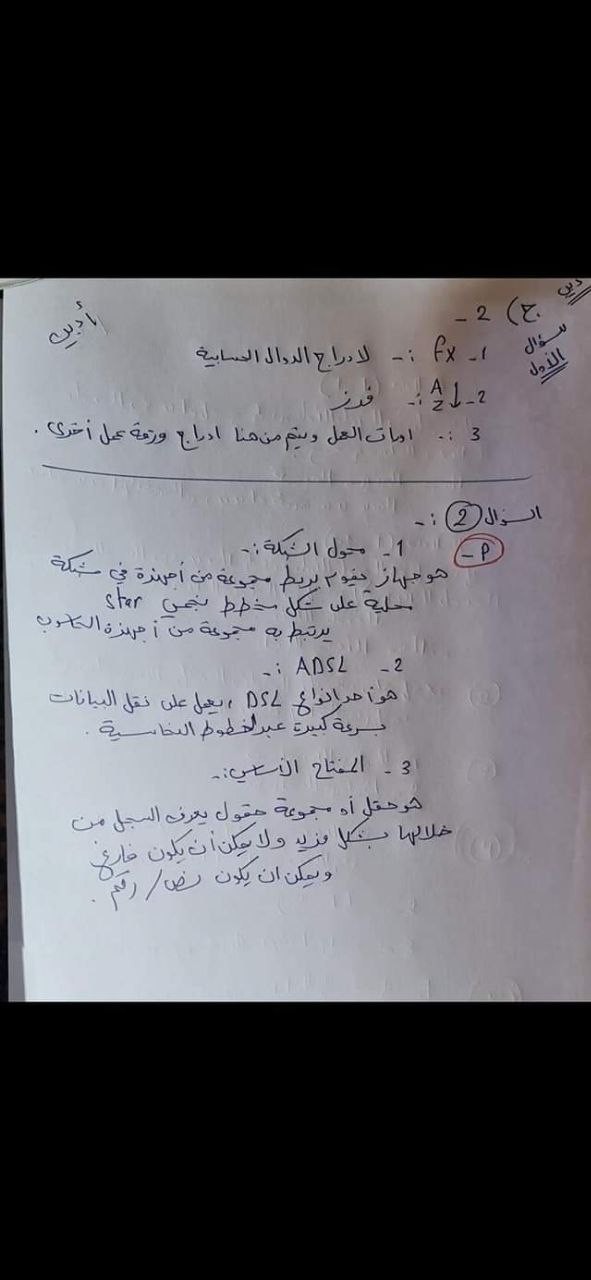 أدبي
ج) 2 -
سؤال
الأول
1- fx :- لادراج الدوال الحسابية
2- A Z ↓ :- فرز
3 :- اوراق العمل ويتم من هنا ادراج ورقة عمل أخرى .
السؤال 2 :-
P - 1- محول الشبكة :-
هو جهاز يقوم بربط مجموعة من أجهزة في شبكة
محلية على شكل مخطط نجمي Star
يرتبط به مجموعة من أجهزة الحاسوب
2- ADSL :-
هو أحد انواع DSL ، يعمل على نقل البيانات
بسرعة كبيرة عبر الخطوط النحاسية .
3- المفتاح الأساسي :-
هو حقل أو مجموعة حقول يعرف السجل من
خلالها بشكل فريد ولا يمكن أن يكون فارغ
ويمكن ان يكون نص / رقم .